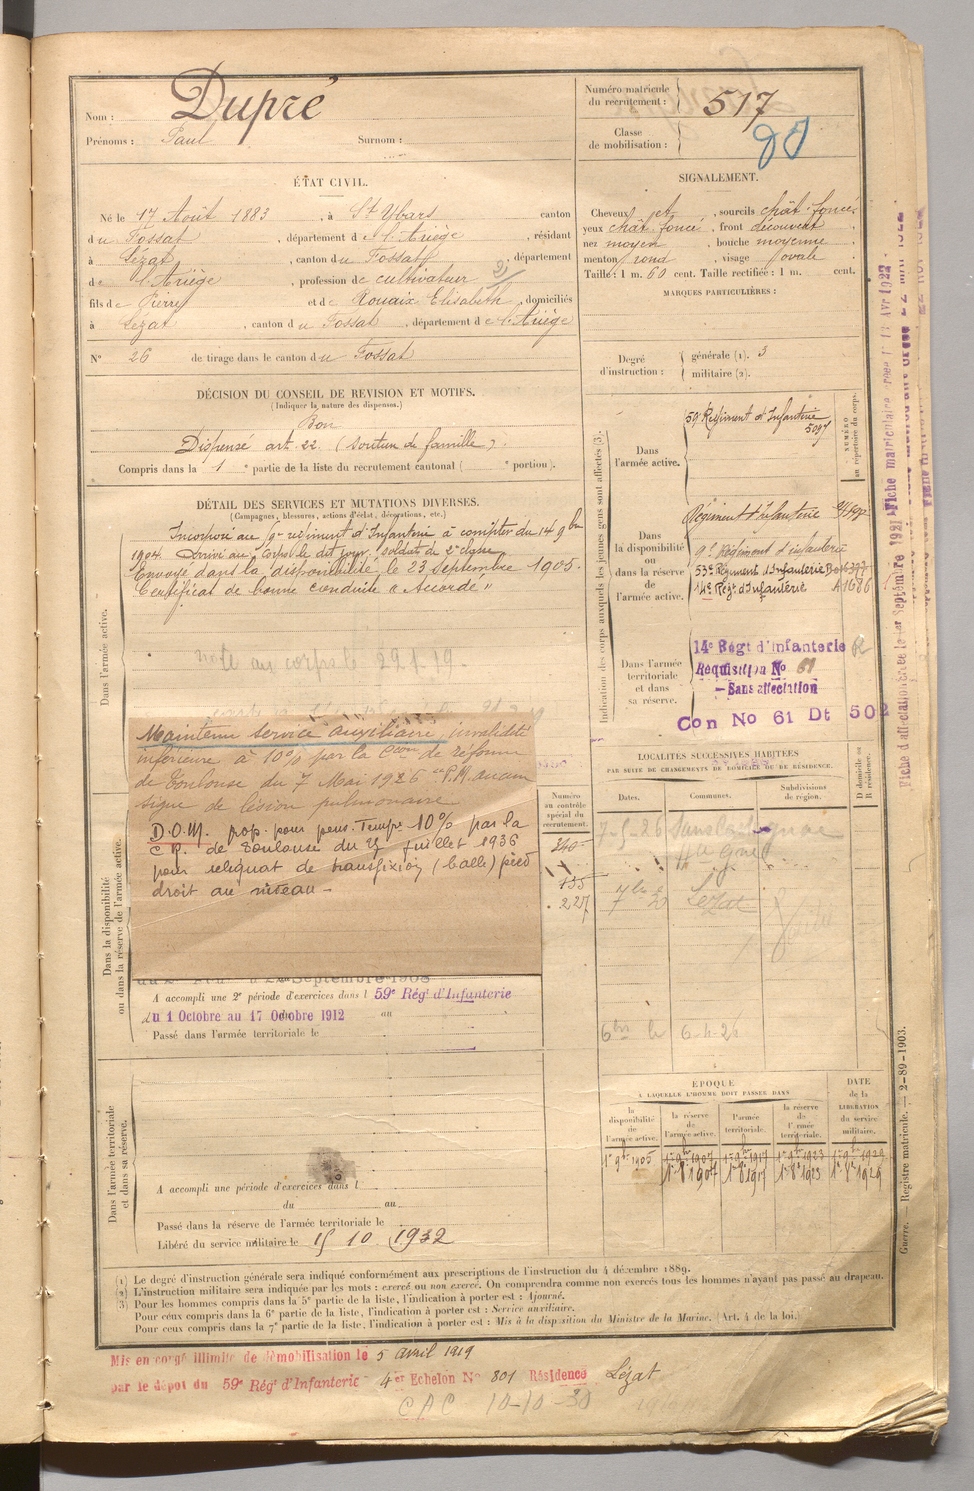 Nom : Dupré
Prénoms : Paul Surnom :
Numéro matricule du recrutement : 517
Classe de mobilisation :
ÉTAT CIVIL.
Né le 17 Août 1883, à St Ybars canton
du Fossat, département de l'Ariège, résidant
à Lézat, canton du Fossat, département
de l'Ariège, profession de cultivateur
fils de Pierre et de Rouaix Elisabeth, domiciliés
à Lézat, canton du Fossat, département de l'Ariège
N° 26 de tirage dans le canton du Fossat
SIGNALEMENT.
Cheveux et, sourcils chât. foncé,
yeux chât. foncé, front découvert,
nez moyen, bouche moyenne,
menton rond, visage ovale
Taille : 1 m. 60 cent. Taille rectifiée : 1 m. cent.
MARQUES PARTICULIÈRES :
Degré d'instruction : générale (1). 3
militaire (2).
DÉCISION DU CONSEIL DE REVISION ET MOTIFS.
(Indiquer la nature des dispenses.)
Bon
Dispensé art. 22 (soutien de famille).
Compris dans la 1e partie de la liste du recrutement cantonal ( e portion).
DÉTAIL DES SERVICES ET MUTATIONS DIVERSES.
(Campagnes, blessures, actions d'éclat, décorations, etc.)
Incorporé au 9e régiment d'Infanterie à compter du 14 9bre
1904. Arrivé au corps le dit jour, soldat de 2e classe
Envoyé dans la disponibilité, le 23 Septembre 1905.
Certificat de bonne conduite "Accordé"
Dans l'armée active.
note au corps le 29.1.19.
Maintenu service auxiliaire, invalidité
inférieure à 10% par la Con de réforme
de Toulouse du 7 Mai 1926
lésion pulmonaire
D.O.M. prop. pour pens. Tempre 10% par la
C.R. de Toulouse du 25 Juillet 1936
pour reliquat de transfixion (balle) pied
droit au niveau -
Dans la disponibilité
ou dans la réserve de l'armée active.
A accompli une 2e période d'exercices dans l 59e Régt d'Infanterie
du 1 Octobre au 17 Octobre 1912 au
Passé dans l'armée territoriale le
Dans l'armée territoriale
et dans sa réserve.
A accompli une période d'exercices dans l
du au
Passé dans la réserve de l'armée territoriale le
Libéré du service militaire le 15 10 1932
Indication des corps auxquels les jeunes gens sont affectés (3).
NUMÉRO
au répertoire du corps.
Dans l'armée active.
59e Régiment d'Infanterie
5097
Dans la disponibilité ou dans la réserve de l'armée active.
Régiment d'Infanterie
9e Régiment d'infanterie
53e Régiment d'Infanterie
14e Régt d'Infanterie A 1686
Dans l'armée territoriale et dans sa réserve.
14e Régt d'Infanterie
Réquisition No 61
- Sans affectation
Con No 61 Dt 502
LOCALITÉS SUCCESSIVES HABITÉES
PAR SUITE DE CHANGEMENTS DE DOMICILE OU DE RÉSIDENCE.
Numéro au contrôle spécial du recrutement.
Dates.
Communes.
Subdivisions de région.
D domicile ou R résidence.
240
135
227
7-5-26
Hte Gne
Lézat
ÉPOQUE
À LAQUELLE L'HOMME DOIT PASSER DANS
la disponibilité de l'armée active.
la réserve de l'armée active.
l'armée territoriale.
la réserve de l'armée territoriale.
DATE de la LIBÉRATION du service militaire.
1er 9bre 1905 1er 9bre 1907 1er 9bre 1917 1er 9bre 1923 1er 9bre 1929
1er 8bre 1907 1er 8bre 1917 1er 8bre 1923 1er 8bre 1929
Guerre. — Registre matricule. — 2-89-1903.
(1) Le degré d'instruction générale sera indiqué conformément aux prescriptions de l'instruction du 4 décembre 1889.
(2) L'instruction militaire sera indiquée par les mots : exercé ou non exercé. On comprendra comme non exercés tous les hommes n'ayant pas passé au drapeau.
(3) Pour les hommes compris dans la 5e partie de la liste, l'indication à porter est : Ajourné.
Pour ceux compris dans la 6e partie de la liste, l'indication à porter est : Service auxiliaire.
Pour ceux compris dans la 7e partie de la liste, l'indication à porter est : Mis à la disposition du Ministre de la Marine. (Art. 4 de la loi.)
Mis en congé illimité de démobilisation le 5 avril 1919
par le dépôt du 59e Régt d'Infanterie 4er Echelon N° 801 Résidence Lézat
CAC 10-10-30